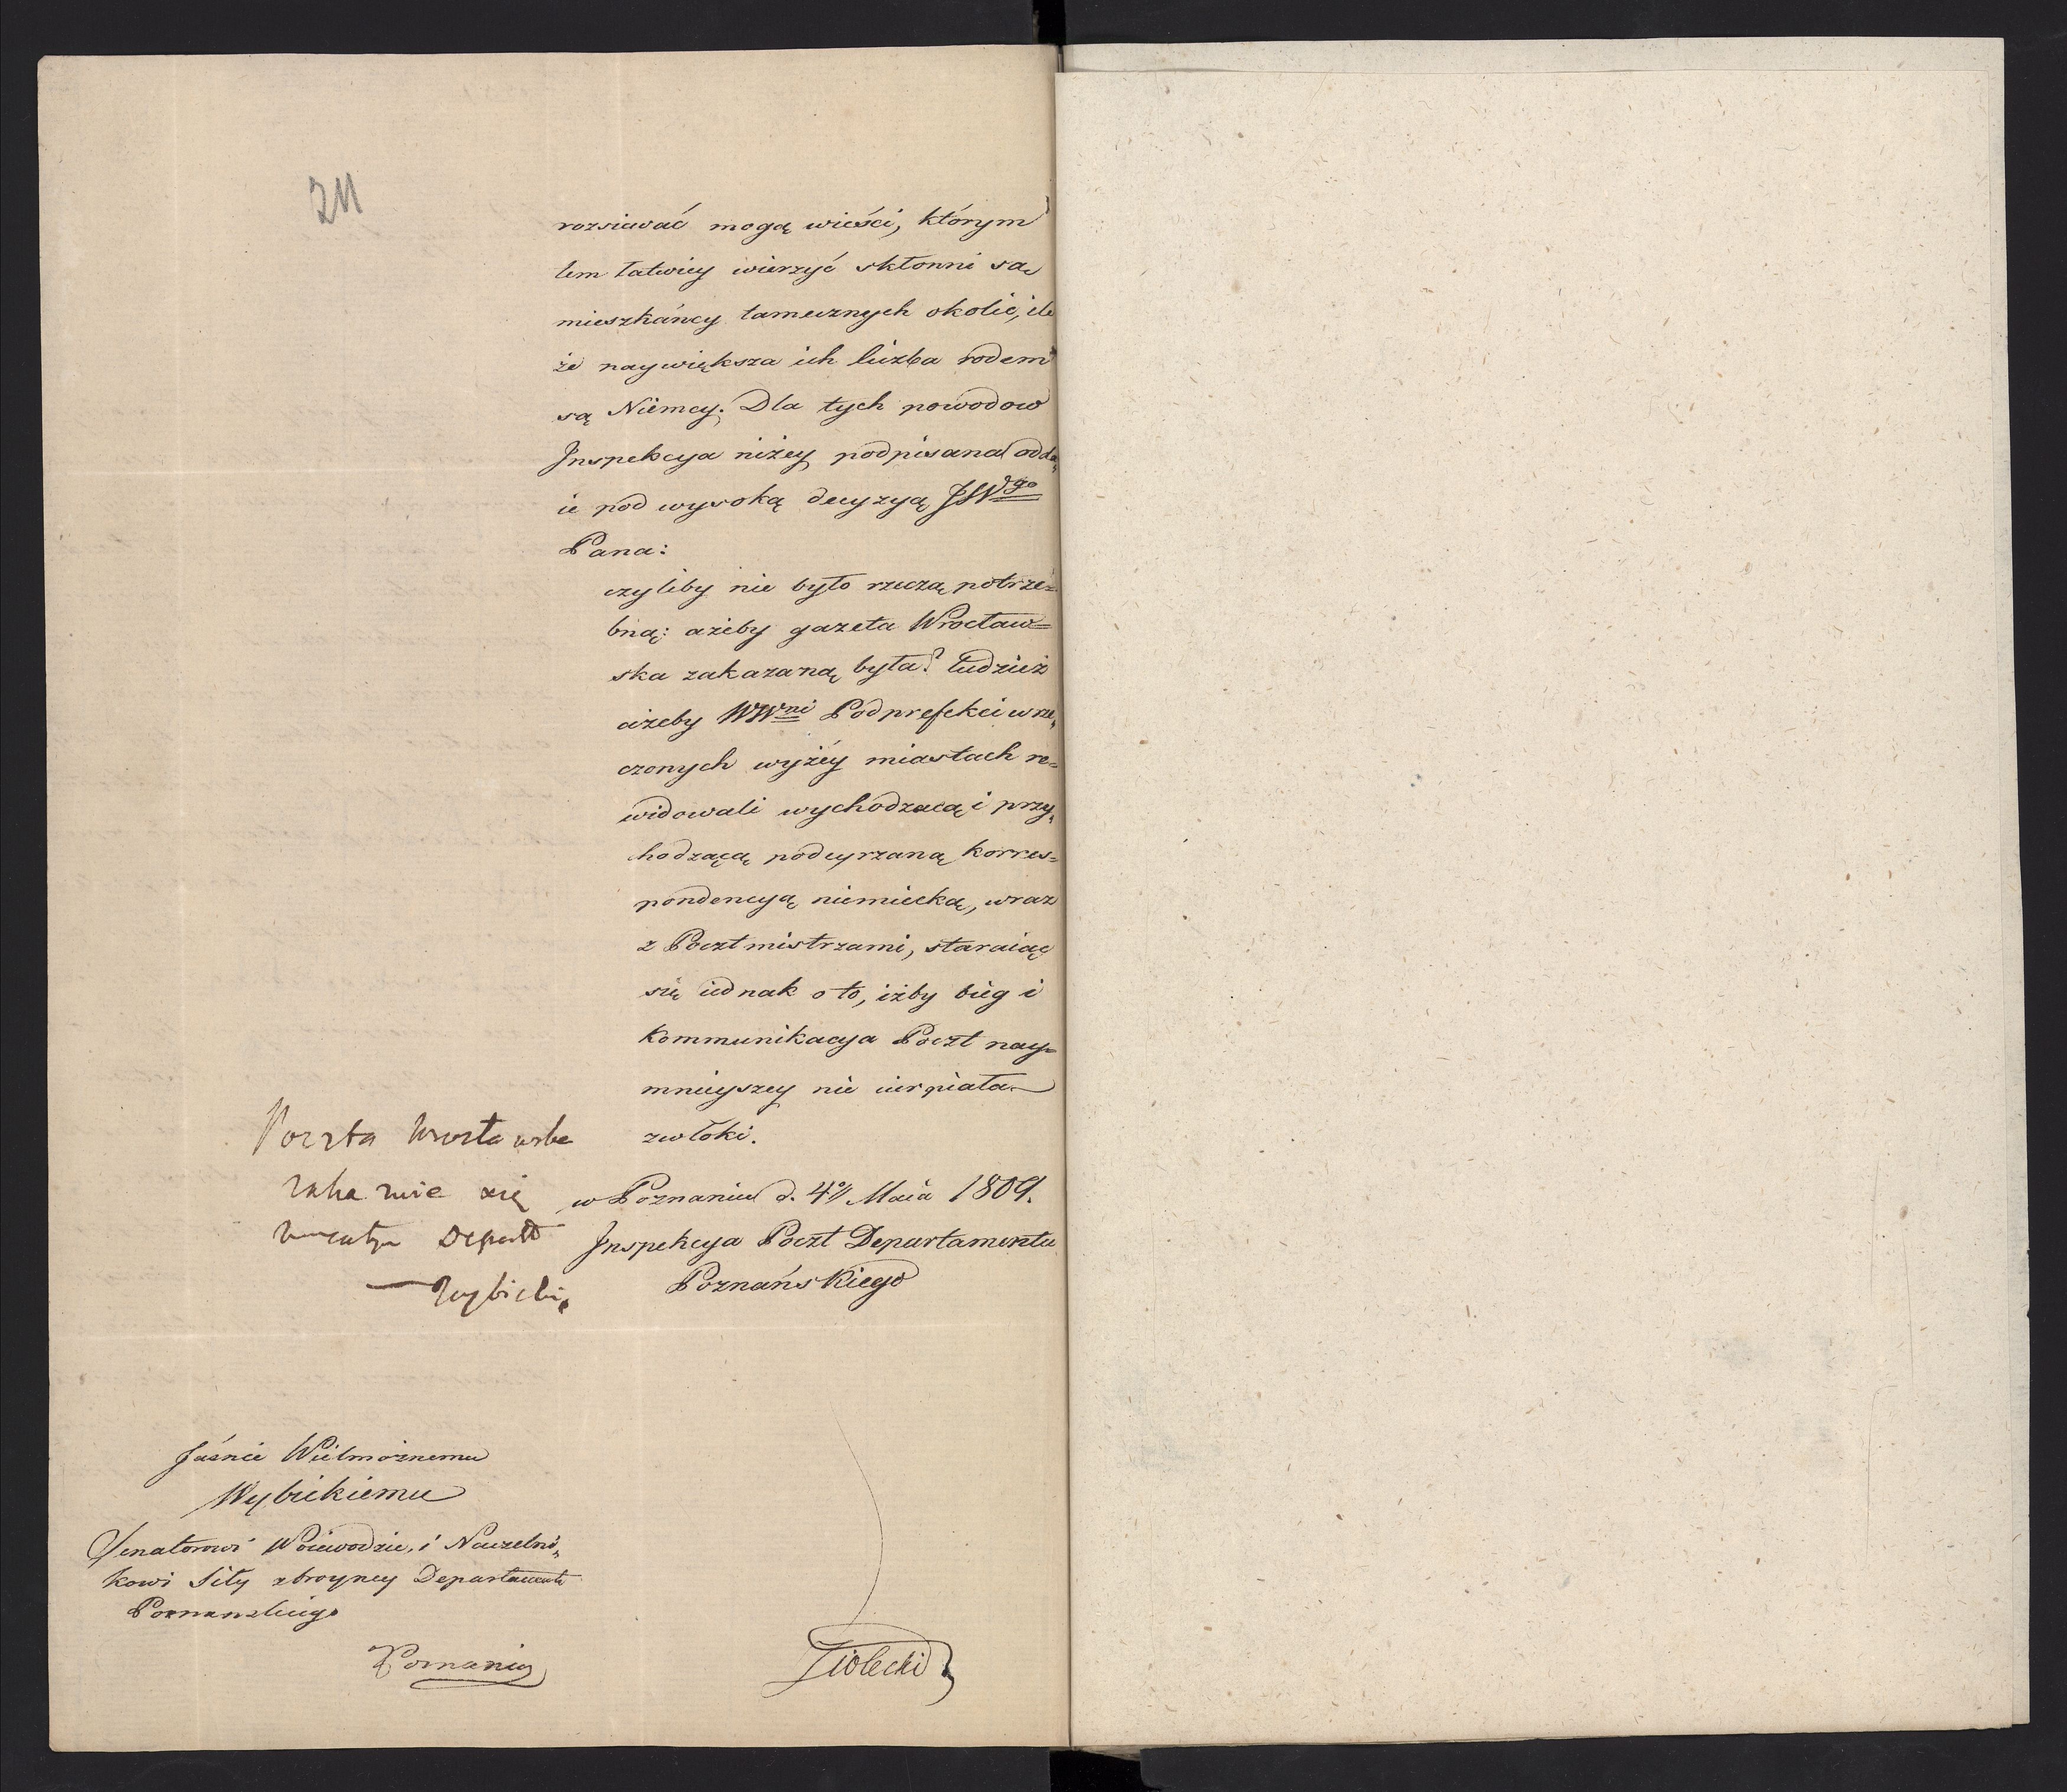 211
rozsiewać mogą wieści, którym
tem łatwiey wierzyć skłonni są
mieszkáncy tamecznych okolic, ile
że naywiększa ich liczba rodem
są Niemcy; Dla tych powodow
Inspekcya niżey podpisana odda„
ie pod wysoką decyzyą JWgo
Pana:
czyliby nie było rzeczą potrze=
bną: ażeby gazeta Wrocław=
ska zakazaną była? tudzież
ażeby WWni Podprefekci w rze„
czonych wyżéy miastach re=
widowali wychodzącą i przy„
chodzącą podeyrzaną korres=
pondencyą niemiecką, wraz
z Pocztmistrzami, staraiąc
się iednak o to, iżby bieg i
kommunikacya Poczt nay=
mnieyszey nie cierpiała
zwłoki.
w Poznaniu d. 4º Maia 1809.
Inspekcya Poczt Departamentu
Poznańskiego
Poczta Wrocławska
zakazuie się
Depart
Wybicki
Jaśnie Wielmożnemu
Wybickiemu
Senatorowi Woiewodzie, i Naczelni„
kowi Siły zbroyney Departamentu
Poznanskiego
w Poznaniu
Ziołecki